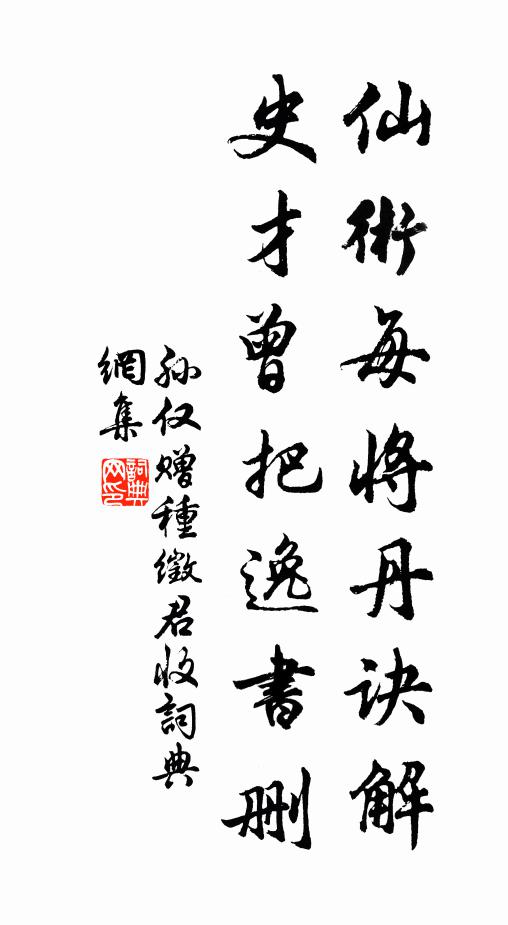 仙術每將丹訣解
史才曾把逸書刪
孙仅赠種徵君收詞典
網集
詞典网印